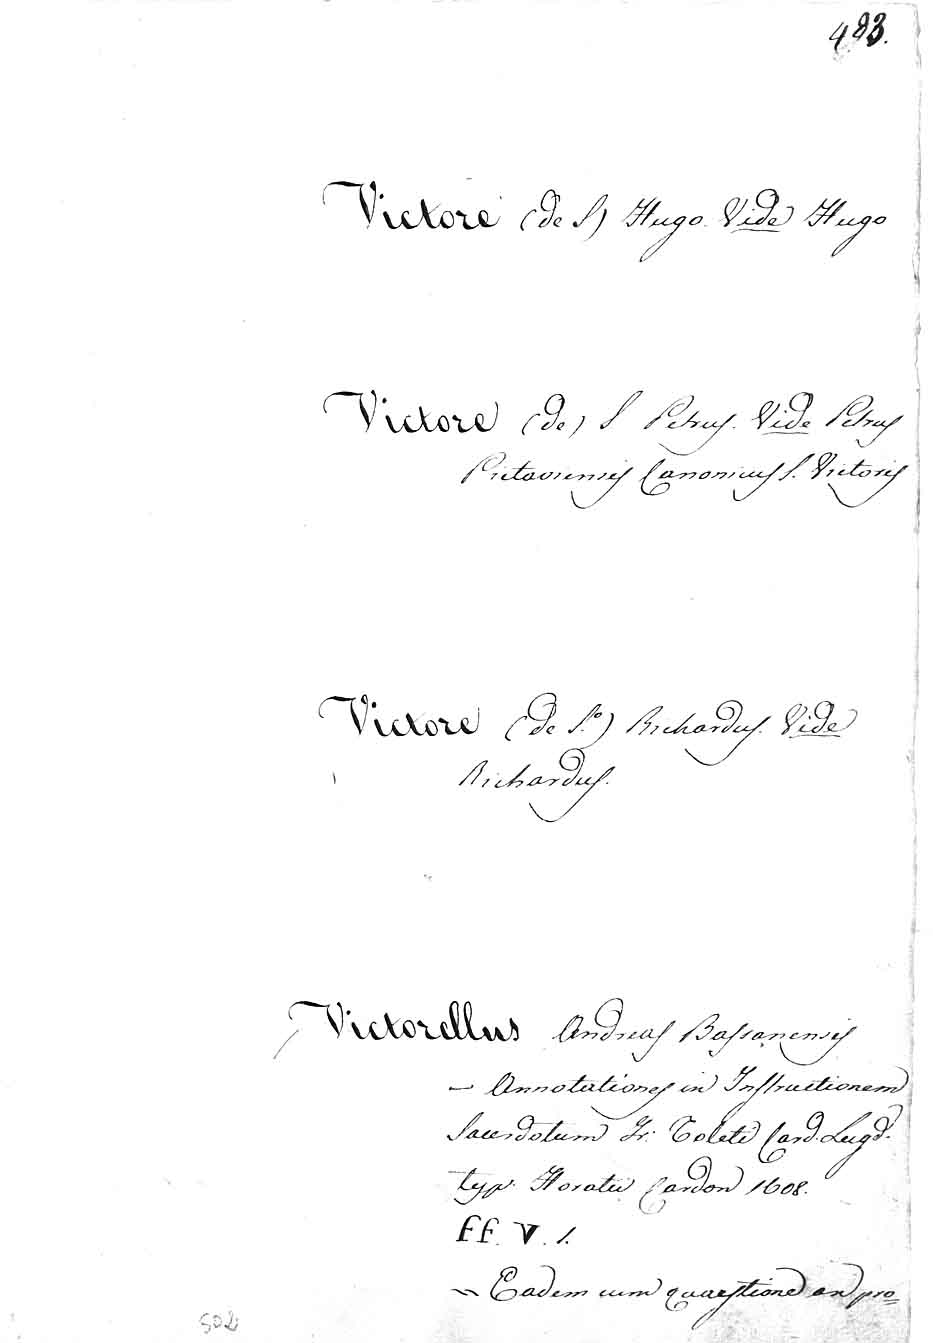 483.
Victore (de S) Hugo. Vide Hugo
Victore (de) S Petrus. Vide Petrus
Pictaviensis Canonicus S. Victoris
Victore (de S.º) Richardus. Vide
Richardus.
Victorellus Andreas Bassanensis
— Annotationes in Instructionem
Sacerdotum Fr: Toleti Card. Lugd.
typ. Horatii Cardon 1608.
ff. V. 1.
~ Eadem cum quaestione an pro=
502